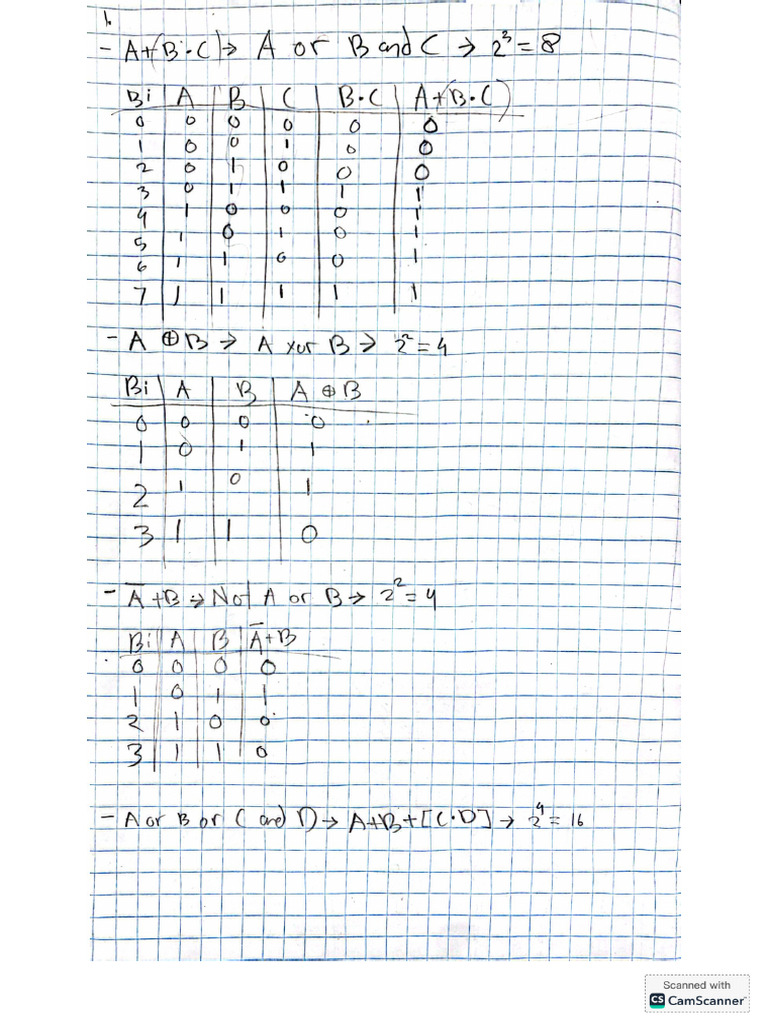 1.
- A+(B·C) → A or B and C → 2³ = 8
Bi | A | B | C | B·C | A+(B·C)
0 | 0 | 0 | 0 | 0 | 0
1 | 0 | 0 | 1 | 0 | 0
2 | 0 | 1 | 0 | 0 | 0
3 | 0 | 1 | 1 | 1 | 1
4 | 1 | 0 | 0 | 0 | 1
5 | 1 | 0 | 1 | 0 | 1
6 | 1 | 1 | 0 | 0 | 1
7 | 1 | 1 | 1 | 1 | 1
- A ⊕ B → A xor B → 2² = 4
Bi | A | B | A ⊕ B
0 | 0 | 0 | 0
1 | 0 | 1 | 1
2 | 1 | 0 | 1
3 | 1 | 1 | 0
- A̅ + B → Not A or B → 2² = 4
Bi | A | B | A̅ + B
0 | 0 | 0 | 0
1 | 0 | 1 | 1
2 | 1 | 0 | 0
3 | 1 | 1 | 0
- A or B or (C and D) → A+B+[C·D] → 2⁴ = 16
Scanned with
CS CamScanner